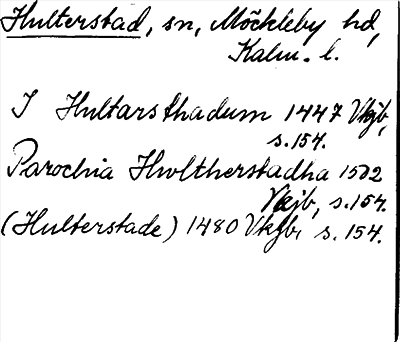 Hulterstad, sn, Möckleby hd,
Kalm. l.
I Hultarsthadum 1447 Vkjb,
s. 154.
Parochia Hwltherstadha 1502
Vkjb, s. 154.
(Hulterstade) 1480 Vkjb, s. 154.